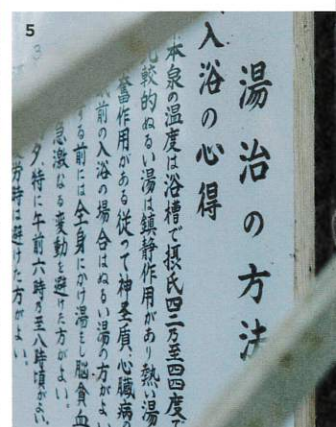 5
湯治の方法
入浴の心得
本泉の温度は浴槽で摂氏四二乃至四四度で
比較的ぬるい湯は鎮静作用があり熱い湯
奮作用がある従って神圣質、心臓病の
前の入浴の場合はぬるい湯の方がよい
る前には全身にかけ湯をし脳貧血
急激なる変動を避けた方がよい。
夕特に午前六時乃至八時頃がよい、
労時は避けた方がよい。